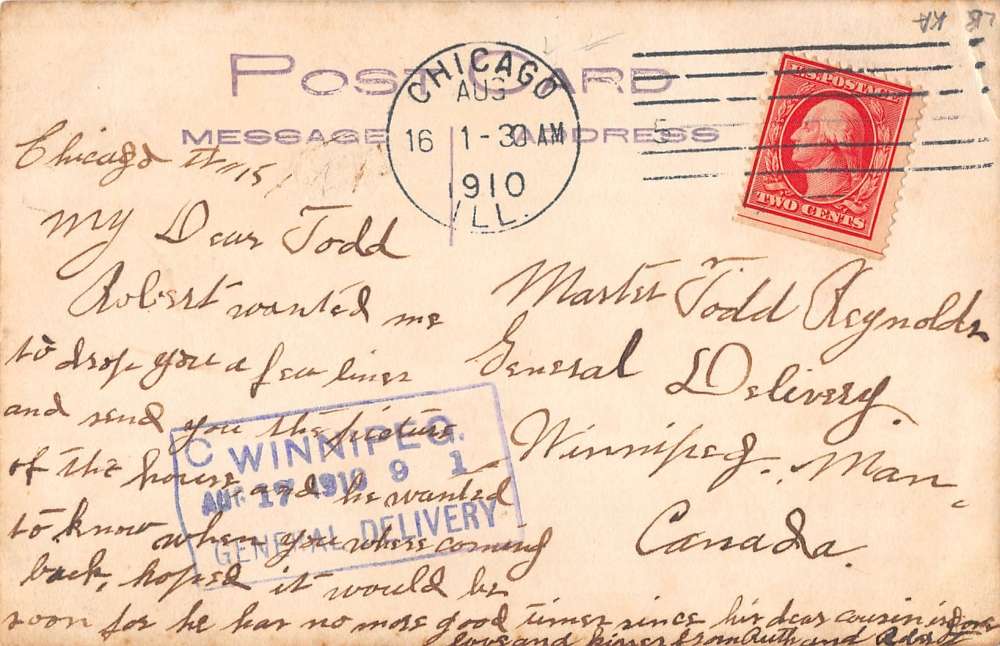 POST CARD
MESSAGE
ADDRESS
CHICAGO
AUG
16 1-30 AM
1910
ILL.
5
U.S. POSTAGE
TWO CENTS
Chicago 15
My Dear Todd
Robert wanted me
to drop you a few lines
and send you the picture
of the house and he wanted
to know when you where coming
back, hoped it would be
soon for he has no more good times since his dear cousin is gone
love and kisses from Ruth and Robert
C WINNIPEG.
AUG 17 1910 9 1
GENERAL DELIVERY
Master Todd Reynolds
General Delivery.
Winnipeg. Man,
Canada.